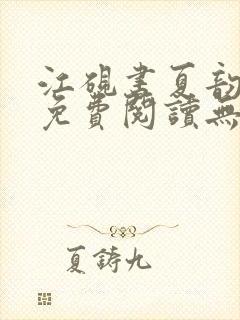 江硯書夏韵
免費閱讀無
夏鑄九